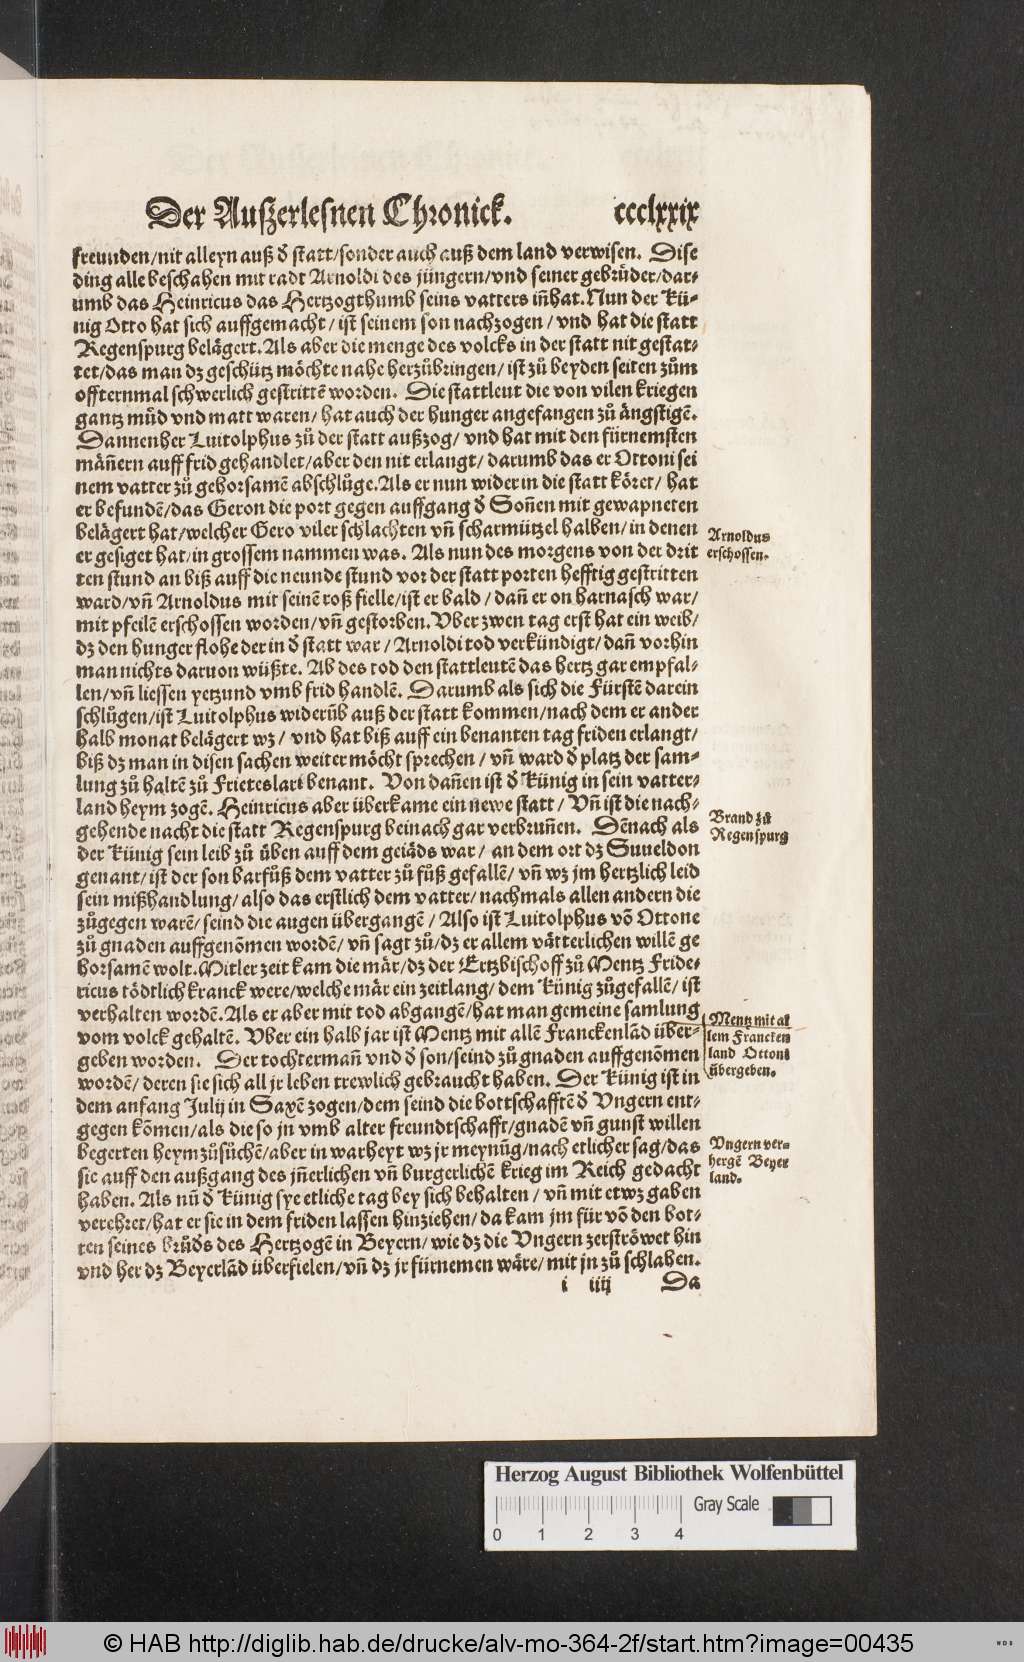 Der Außerlesnen Chronick. ccclxxix
freunden/nit alleyn auß ð statt/sonder auch auß dem land verwisen. Dise
ding alle beschahen mit radt Arnoldi des jüngern/vnd seiner gebrüder/dar-
umb das Heinricus das Hertzogthumb seins vatters iñhat. Nun der Kü-
nig Otto hat sich auffgemacht/ist seinem son nachzogen/vnd hat die statt
Regenspurg belägert. Als aber die menge des volcks in der statt nit gestat-
tet/das man dz geschütz möchte nahe herzůbringen/ist zů beyden seiten zům
offternmal schwerlich gestrittē worden. Die stattleut die von vilen kriegen
gantz můd vnd matt waren/hat auch der hunger angefangen zů ängstigē.
Dannenher Luitolphus zů der statt außzog/vnd hat mit den fürnemsten
mäñern auff frid gehandlet/aber den nit erlangt/darumb das er Ottoni sei
nem vatter zů gehorsamē abschlůge. Als er nun wider in die statt köret/hat
er befundē/das Geron die port gegen auffgang ð Soñen mit gewapneten
belägert hat/welcher Gero viler schlachten vñ scharmützel halben/in denen
er gesiget hat/in grossem nammen was. Als nun des morgens von der drit
ten stund an biß auff die neunde stund vor der statt porten hefftig gestritten
ward/vñ Arnoldus mit seinē roß fielle/ist er bald/dañ er on harnasch war/
mit pfeilē erschossen worden/vñ gestorben. Vber zwen tag erst hat ein weib/
dz den hunger flohe der in ð statt war/Arnoldi tod verkündigt/dañ vorhin
man nichts daruon wüßte. Ab des tod den stattleutē das hertz gar empfal-
len/vñ liessen yetzund vmb frid handlē. Darumb als sich die Fürstē darein
schlůgen/ist Luitolphus widerūb auß der statt kommen/nach dem er ander
halb monat belägert wz/vnd hat biß auff ein benanten tag friden erlangt/
biß dz man in disen sachen weiter möcht sprechen/vñ ward ð platz der sam-
lung zů haltē zů Frieteslari benant. Von dañen ist ð Künig in sein vatter-
land heym zogē. Heinricus aber überkame ein newe statt/Vñ ist die nach-
gehende nacht die statt Regenspurg beinach gar verbruñen. Dēnach als
der Künig sein leib zů üben auff dem geiäds war/an dem ort dz Suueldon
genant/ist der son barfůß dem vatter zů fůß gefallē/vñ wz jm hertzlich leid
sein mißhandlung/also das erstlich dem vatter/nachmals allen andern die
zůgegen warē/seind die augen übergangē/Also ist Luitolphus vō Ottone
zů gnaden auffgenōmen wordē/vñ sagt zů/dz er allem vätterlichen willē ge
horsamē wolt. Mitler zeit kam die mär/dz der Ertzbischoff zů Mentz Fride-
ricus tödtlich kranck were/welche mär ein zeitlang/dem Künig zůgefallē/ist
verhalten wordē. Als er aber mit tod abgangē/hat man gemeine samlung
vom volck gehaltē. Vber ein halb jar ist Mentz mit allē Franckenlād über-
geben worden. Der tochtermañ vnd ð son/seind zů gnaden auffgenōmen
wordē/deren sie sich all jr leben trewlich gebraucht haben. Der Künig ist in
dem anfang Julij in Saxē zogen/dem seind die bottschafftē ð Vngern ent-
gegen kōmen/als die so jn vmb alter freundtschafft/gnadē vñ gunst willen
begerten heymzůsůchē/aber in warheyt wz jr meynūg/nach etlicher sag/das
sie auff den außgang des jñerlichen vñ burgerlichē krieg im Reich gedacht
haben. Als nū ð Künig sye etliche tag bey sich behalten/vñ mit etwz gaben
verehret/hat er sie in dem friden lassen hinziehen/da kam jm für vō den bot-
ten seines brůðs des Hertzogē in Beyern/wie dz die Vngern zerströwet hin
vnd her dz Beyerlād überfielen/vñ dz jr fürnemen wäre/mit jn zů schlahen.
i iiij Da
Arnoldus
erschossen.
Brand zů
Regenspurg
Mentz mit al
lem Francken
land Ottoni
übergeben.
Vngern ver-
hergē Beyer
land.
Herzog August Bibliothek Wolfenbüttel
Gray Scale
0 1 2 3 4
© HAB http://diglib.hab.de/drucke/alv-mo-364-2f/start.htm?image=00435